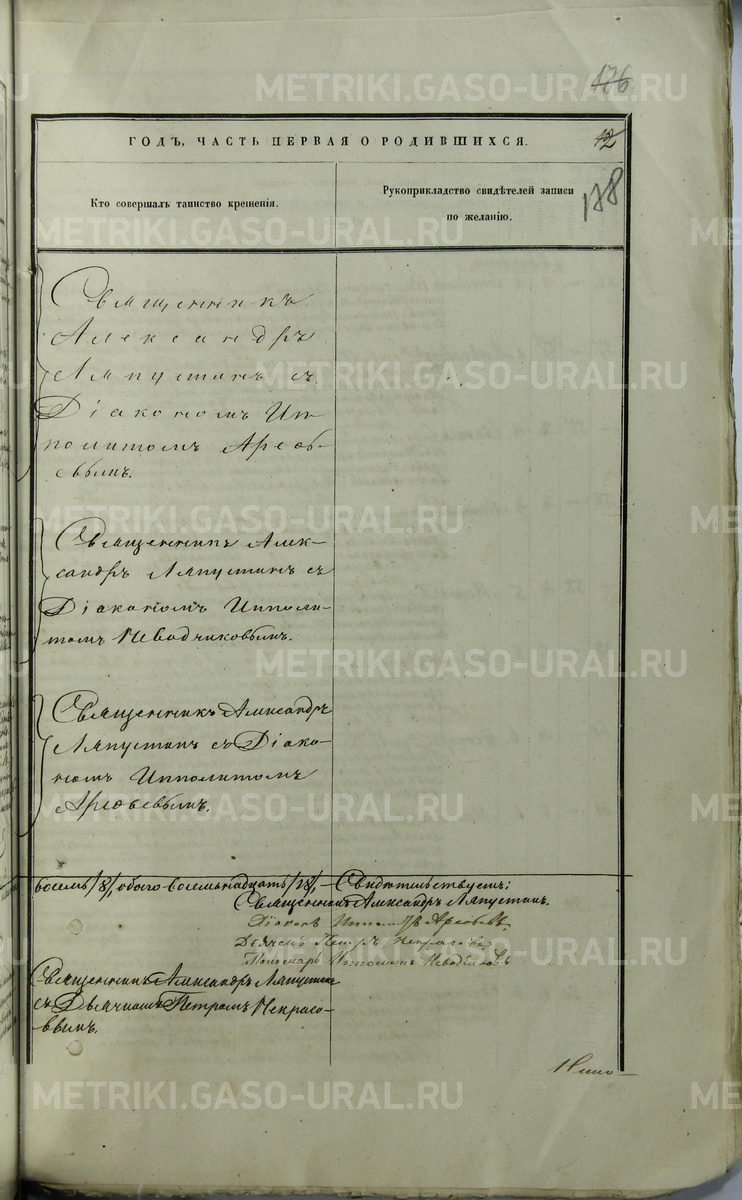 176
ГОДЪ, ЧАСТЬ ПЕРВАЯ О РОДИВШИХСЯ.
42
Кто совершалъ таинство крещенія.
Рукоприкладство свидѣтелей записи
по желанію.
178
Священникъ
Александръ
Ляпустинъ съ
Діакономъ Ип
политомъ Арефь-
евымъ.
Священникъ Алек-
сандръ Ляпустинъ съ
Діакономъ Ипполи-
томъ Неводчиковымъ.
Священникъ Александръ
Ляпустинъ съ Діако-
номъ Ипполитомъ
Арефьевымъ.
восемь /8/, обоего восемьнадцать /18/, – Свидѣтельствуетъ:
Священникъ Александръ Ляпустинъ.
Діаконъ Ипполитъ Арефьевъ
Дьячекъ Петръ Некрасовъ
Пономарь Ипполитъ Неводчиковъ
Священникъ Александръ Ляпустинъ
съ Дьячкомъ Петромъ Некрасо-
вымъ.
METRIKI.GASO-URAL.RU